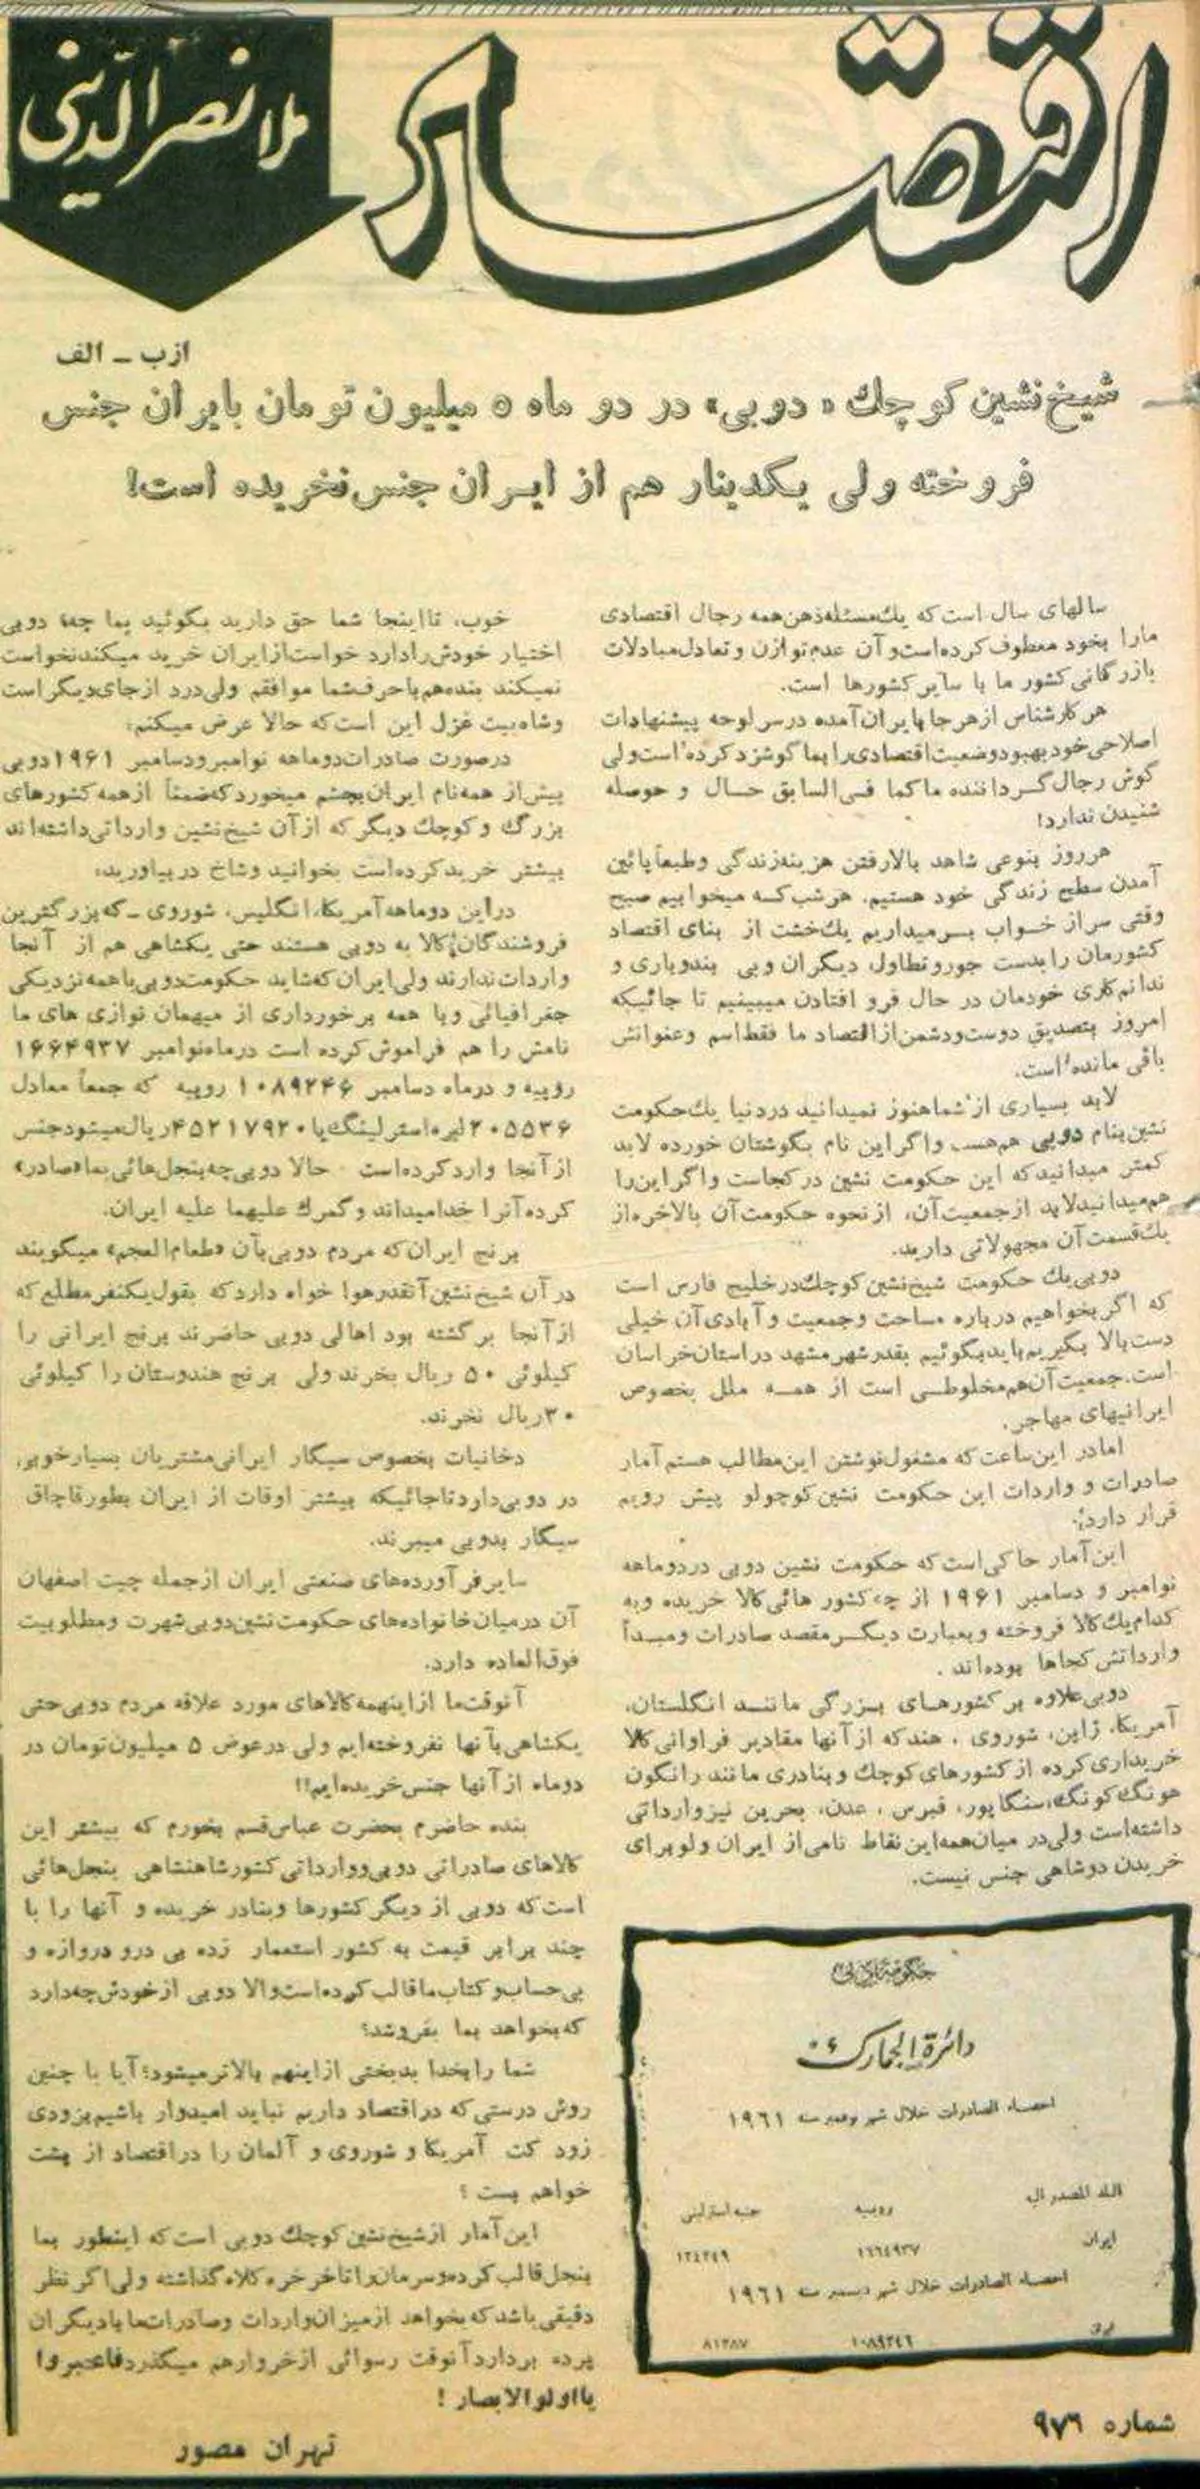 اقتصاد
ملانصرالدینی
از ب - الف
شیخ‌نشین کوچک «دوبی» در دو ماه ۵ میلیون تومان بایران جنس
فروخته ولی یکدینار هم از ایران جنس نخریده است!
سالهای سال است که یك مسئله ذهن همه رجال اقتصادی
مارا بخود معطوف کرده است و آن عدم توازن و تعادل مبادلات
بازرگانی کشور ما با سایر کشورها است.
هر کارشناس از هر جا بایران آمده درسرلوحه پیشنهادات
اصلاحی خود بهبود وضعیت اقتصادی را بما گوشزد کرده است ولی
گوش رجال گرداننده ما کما فی‌السابق حال و حوصله
شنیدن ندارد!
هرروز بنوعی شاهد بالارفتن هزینه زندگی و طبعاً پائین
آمدن سطح زندگی خود هستیم. هر شب که میخوابیم صبح
وقتی سر از خواب برمیداریم یك خشت از بنای اقتصاد
کشورمان را بدست جور و تطاول دیگران و بی بندوباری و
ندانم کاری خودمان در حال فرو افتادن میبینیم تا جائیکه
امروز بتصدیق دوست و دشمن از اقتصاد ما فقط اسم و عنوانش
باقی مانده است.
لابد بسیاری از شما هنوز نمیدانید دردنیا یك حکومت
نشین بنام دوبی هم هست واگر این نام بگوشتان خورده لابد
کمتر میدانید که این حکومت نشین در کجاست واگر این را
هم میدانید لابد از جمعیت آن، از نحوه حکومت آن بالاخره از
یك قسمت آن مجهولاتی دارید.
دوبی یك حکومت شیخ نشین کوچك در خلیج فارس است
که اگر بخواهیم درباره مساحت و جمعیت و آبادی آن خیلی
دست بالا بگیریم باید بگوئیم بقدر شهر مشهد در استان خراسان
است. جمعیت آن هم مخلوطی است از همه ملل بخصوص
ایرانیهای مهاجر.
اما در این ساعت که مشغول نوشتن این مطالب هستم آمار
صادرات و واردات این حکومت نشین کوچولو پیش رویم
قرار دارد:
این آمار حاکی است که حکومت نشین دوبی در دوماهه
نوامبر و دسامبر ۱۹۶۱ از چه کشور هائی کالا خریده و به
کدام یك کالا فروخته و بعبارت دیگر مقصد صادرات و مبدأ
وارداتش کجاها بوده‌اند.
دوبی علاوه بر کشورهای بزرگی مانند انگلستان،
آمریکا، ژاپن، شوروی، هند که از آنها مقادیر فراوانی کالا
خریداری کرده از کشورهای کوچك و بنادری مانند رانگون
هونگ کونگ، سنگاپور، قبرس، عدن، بحرین نیز وارداتی
داشته است ولی در میان همه این نقاط نامی از ایران ولو برای
خریدن دوشاهی جنس نیست.
حکومة دبی
دائرة الجمارك
احصاء الصادرات خلال شهر نوفمبر سنه ۱۹٦۱
البلد المصدر الیه روبیه جنیه استرلینی
ایران ۱٦٦٤۹۳۷ ۱۲٤۲٤۹
احصاء الصادرات خلال شهر دیسمبر سنه ۱۹٦۱
ایران ۱۰۸۹۲٤٦ ۸۱۲۸۷
شماره ۹۷۶
خوب، تا اینجا شما حق دارید بگوئید بما چه؛ دوبی
اختیار خودش را دارد خواست از ایران خرید میکند نخواست
نمیکند بنده هم با حرف شما موافقم ولی درد از جای دیگر است
و شاه بیت غزل این است که حالا عرض میکنم:
درصورت صادرات دوماهه نوامبر و دسامبر ۱۹۶۱ دوبی
بیش از همه نام ایران بچشم میخورد که ضمناً از همه کشورهای
بزرگ و کوچك دیگر که از آن شیخ نشین وارداتی داشته‌اند
بیشتر خرید کرده است بخوانید و شاخ در بیاورید:
در این دوماهه آمریکا، انگلیس، شوروی ـ که بزرگترین
فروشندگان کالا به دوبی هستند حتی یکشاهی هم از آنجا
واردات ندارند ولی ایران که شاید حکومت دوبی با همه نزدیکی
جغرافیائی و با همه برخورداری از میهمان نوازی های ما
نامش را هم فراموش کرده است درماه نوامبر ۱۶۶۴۹۳۷
روپیه و درماه دسامبر ۱۰۸۹۲۴۶ روپیه که جمعاً معادل
۲۰۵۵۳۶ لیره استرلینگ یا ۴۵۲۱۷۹۲۰ ریال میشود جنس
از آنجا وارد کرده است حالا دوبی چه بنجل هائی بما «صادر»
کرده آنرا خدا میداند و گمرك علیهما علیه ایران.
برنج ایران که مردم دوبی بآن «طعام العجم» میگویند
در آن شیخ نشین آنقدر هوا خواه دارد که بقول یکنفر مطلع که
از آنجا برگشته بود اهالی دوبی حاضرند برنج ایرانی را
کیلوئی ۵۰ ریال بخرند ولی برنج هندوستان را کیلوئی
۳۰ ریال نخرند.
دخانیات بخصوص سیگار ایرانی مشتریان بسیار خوبی
در دوبی دارد تا جائیکه بیشتر اوقات از ایران بطور قاچاق
سیگار بدوبی میبرند.
سایر فرآورده‌های صنعتی ایران از جمله چیت اصفهان
آن درمیان خانواده‌های حکومت نشین دوبی شهرت و مطلوبیت
فوق‌العاده دارد.
آنوقت ما از اینهمه کالاهای مورد علاقه مردم دوبی حتی
یکشاهی بآنها نفروخته‌ایم ولی درعوض ۵ میلیون تومان در
دوماه از آنها جنس خریده‌ایم!!
بنده حاضرم بحضرت عباس قسم بخورم که بیشتر این
کالاهای صادراتی دوبی و وارداتی کشور شاهنشاهی بنجل هائی
است که دوبی از دیگر کشورها و بنادر خریده و آنها را با
چند برابر قیمت به کشور استعمار زده بی درو دروازه و
بی حساب و کتاب ما قالب کرده است والا دوبی از خودش چه دارد
که بخواهد بما بفروشد؟
شما را بخدا بدبختی از اینهم بالاتر میشود؟ آیا با چنین
روش درستی که در اقتصاد داریم نباید امیدوار باشیم بزودی
زود کت آمریکا و شوروی و آلمان را در اقتصاد از پشت
خواهیم بست؟
این آمار از شیخ نشین کوچك دوبی است که اینطور بما
بنجل قالب کرده و سرمان را تا خرخره کلاه گذاشته ولی اگر نظر
دقیقی باشد که بخواهد از میزان واردات و صادرات ما با دیگران
پرده بردارد آنوقت رسوائی از خروار هم میگذرد فاعتبروا
یا اولوالابصار!
تهران مصور